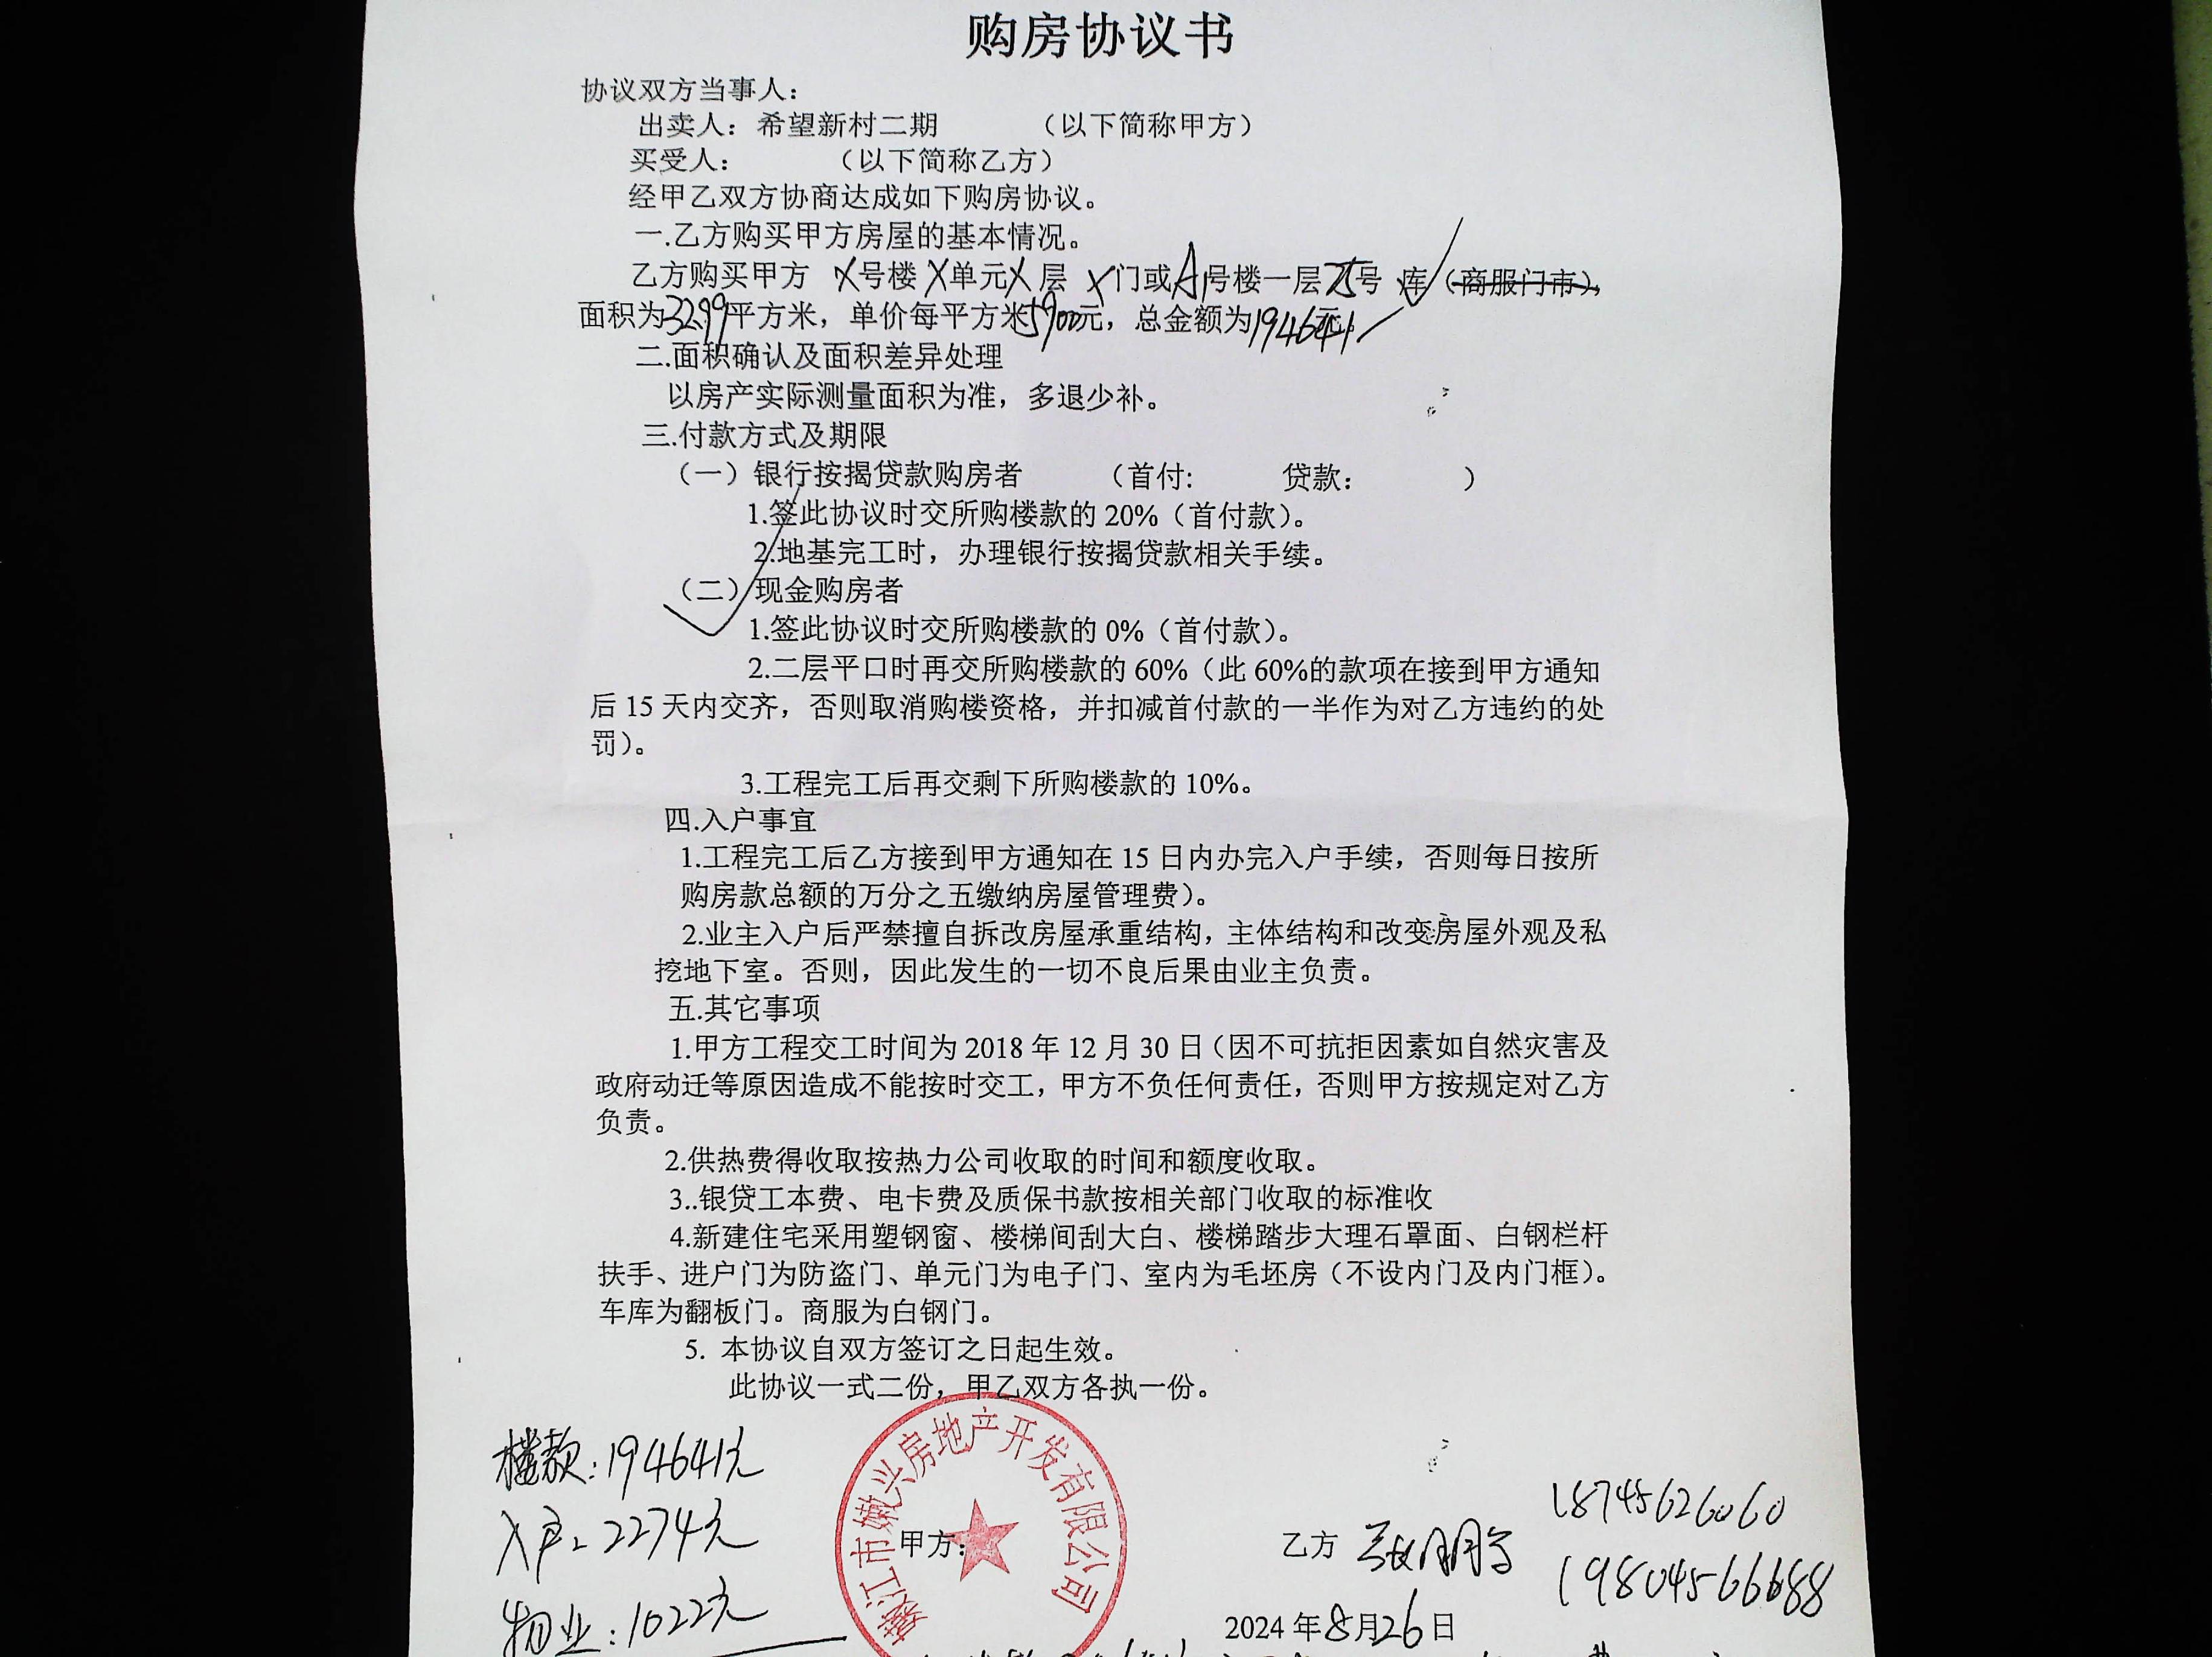 购房协议书
协议双方当事人：
出卖人：希望新村二期 （以下简称甲方）
买受人： （以下简称乙方）
经甲乙双方协商达成如下购房协议。
一.乙方购买甲方房屋的基本情况。
乙方购买甲方 X号楼 X单元X层 X门或A1号楼一层 号 库（商服门市），
面积为32.99平方米，单价每平方米5900元，总金额为194641元。
二.面积确认及面积差异处理
以房产实际测量面积为准，多退少补。
三.付款方式及期限
（一）银行按揭贷款购房者 （首付: 贷款： ）
1.签此协议时交所购楼款的 20%（首付款）。
2.地基完工时，办理银行按揭贷款相关手续。
（二）现金购房者
1.签此协议时交所购楼款的 0%（首付款）。
2.二层平口时再交所购楼款的 60%（此 60%的款项在接到甲方通知
后 15 天内交齐，否则取消购楼资格，并扣减首付款的一半作为对乙方违约的处
罚）。
3.工程完工后再交剩下所购楼款的 10%。
四.入户事宜
1.工程完工后乙方接到甲方通知在 15 日内办完入户手续，否则每日按所
购房款总额的万分之五缴纳房屋管理费）。
2.业主入户后严禁擅自拆改房屋承重结构，主体结构和改变房屋外观及私
挖地下室。否则，因此发生的一切不良后果由业主负责。
五.其它事项
1.甲方工程交工时间为 2018 年 12 月 30 日（因不可抗拒因素如自然灾害及
政府动迁等原因造成不能按时交工，甲方不负任何责任，否则甲方按规定对乙方
负责。
2.供热费得收取按热力公司收取的时间和额度收取。
3..银贷工本费、电卡费及质保书款按相关部门收取的标准收
4.新建住宅采用塑钢窗、楼梯间刮大白、楼梯踏步大理石罩面、白钢栏杆
扶手、进户门为防盗门、单元门为电子门、室内为毛坯房（不设内门及内门框）。
车库为翻板门。商服为白钢门。
5. 本协议自双方签订之日起生效。
此协议一式二份，甲乙双方各执一份。
楼款：194641元
入户：2274元
物业：1022元
嫩江市嫩兴房地产开发有限公司
甲方：
乙方
18745626060
19804566688
2024 年8月26日